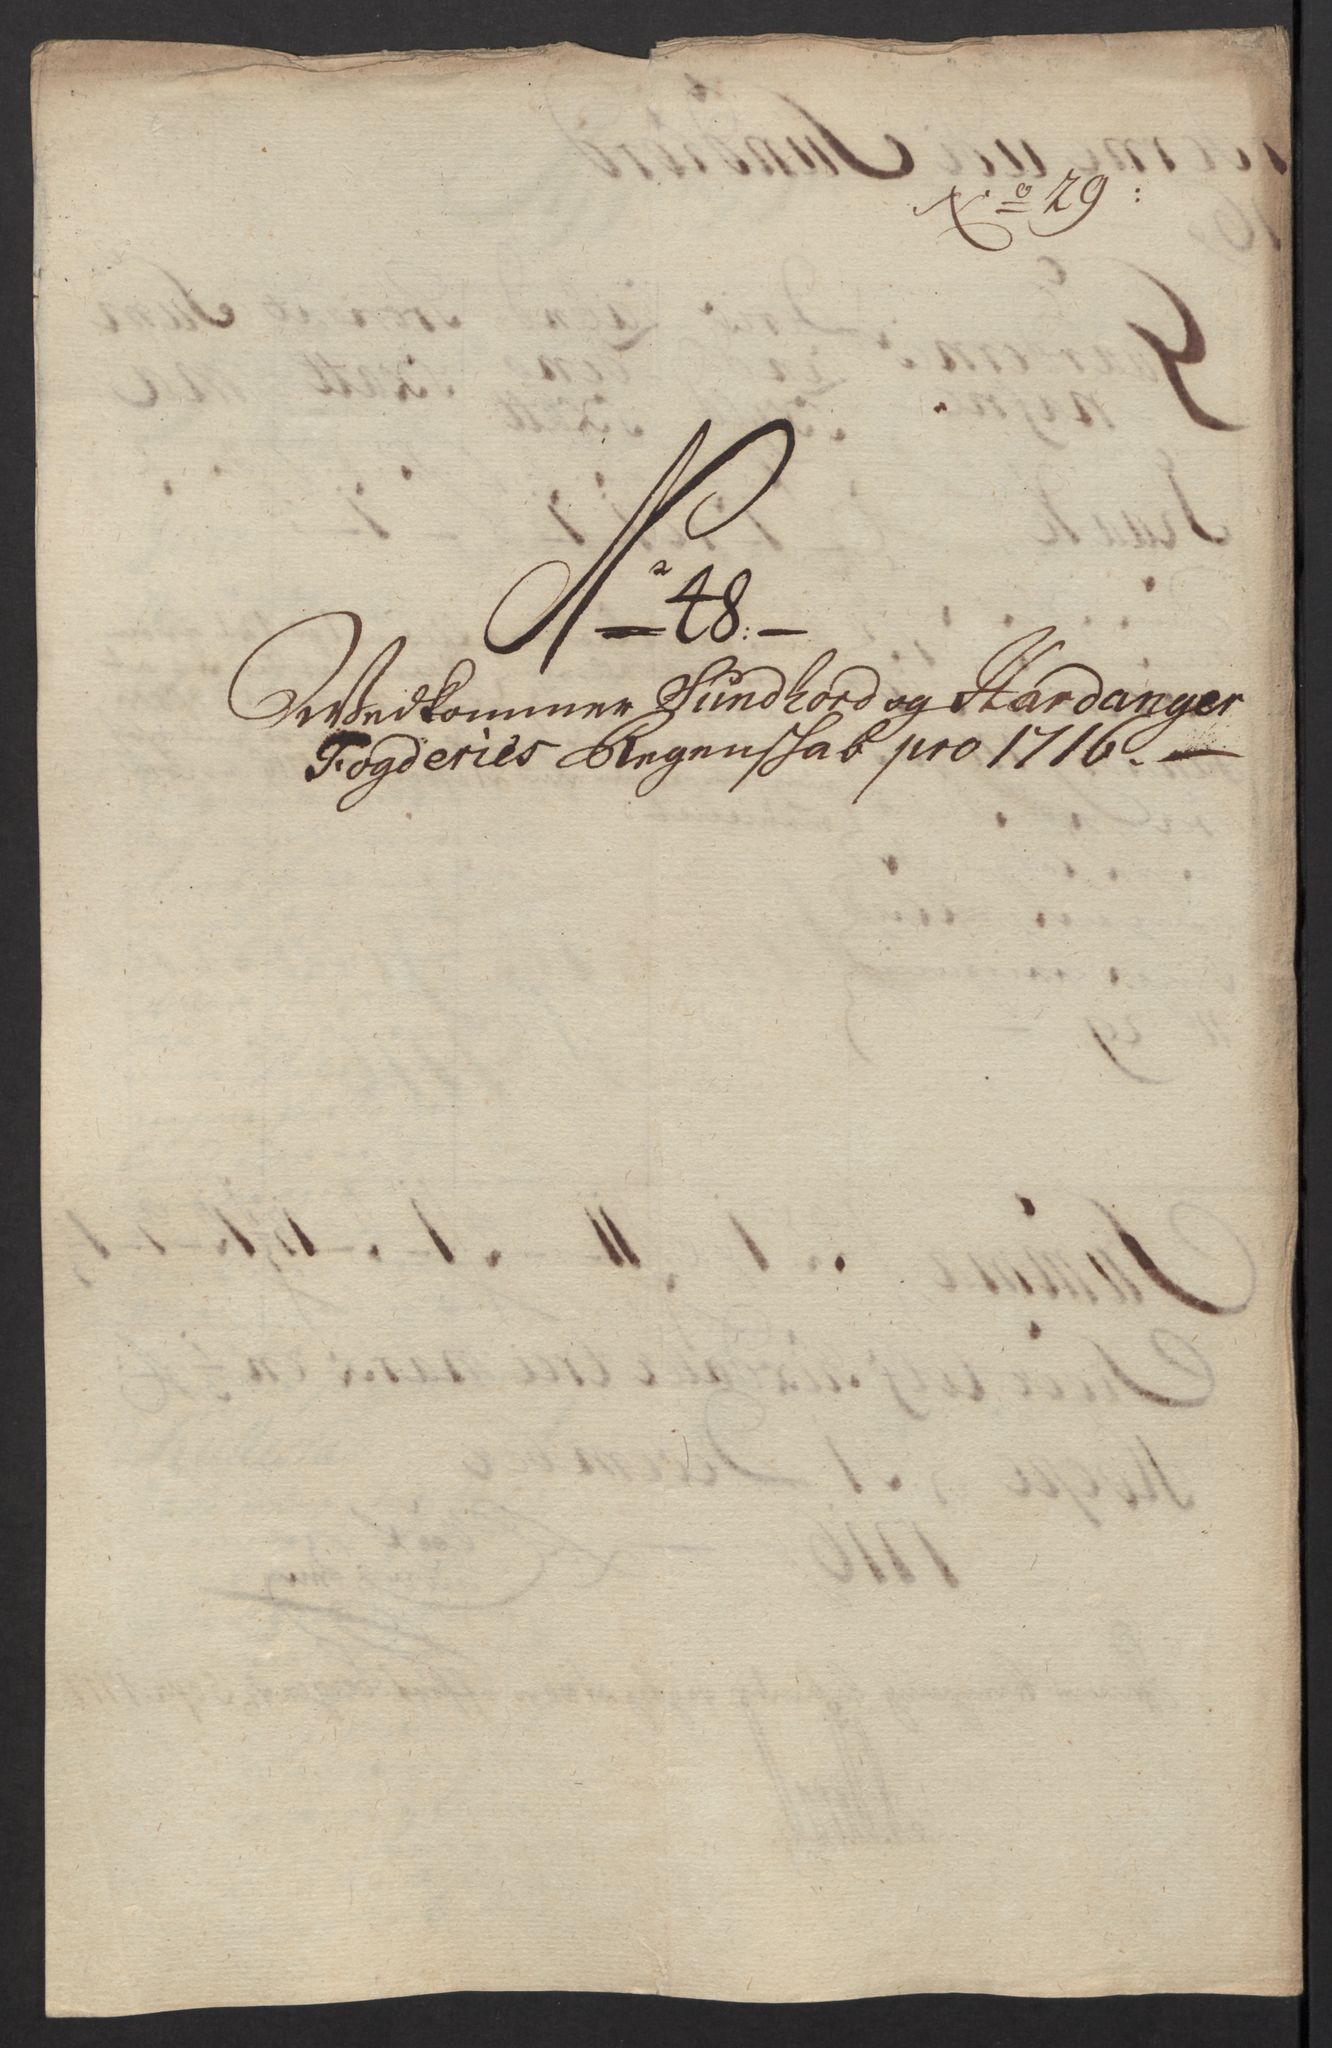 No 29:
No 48.
Vedkommer Sundhord og Hardanger
Fogderies Regenskab pro 1716.